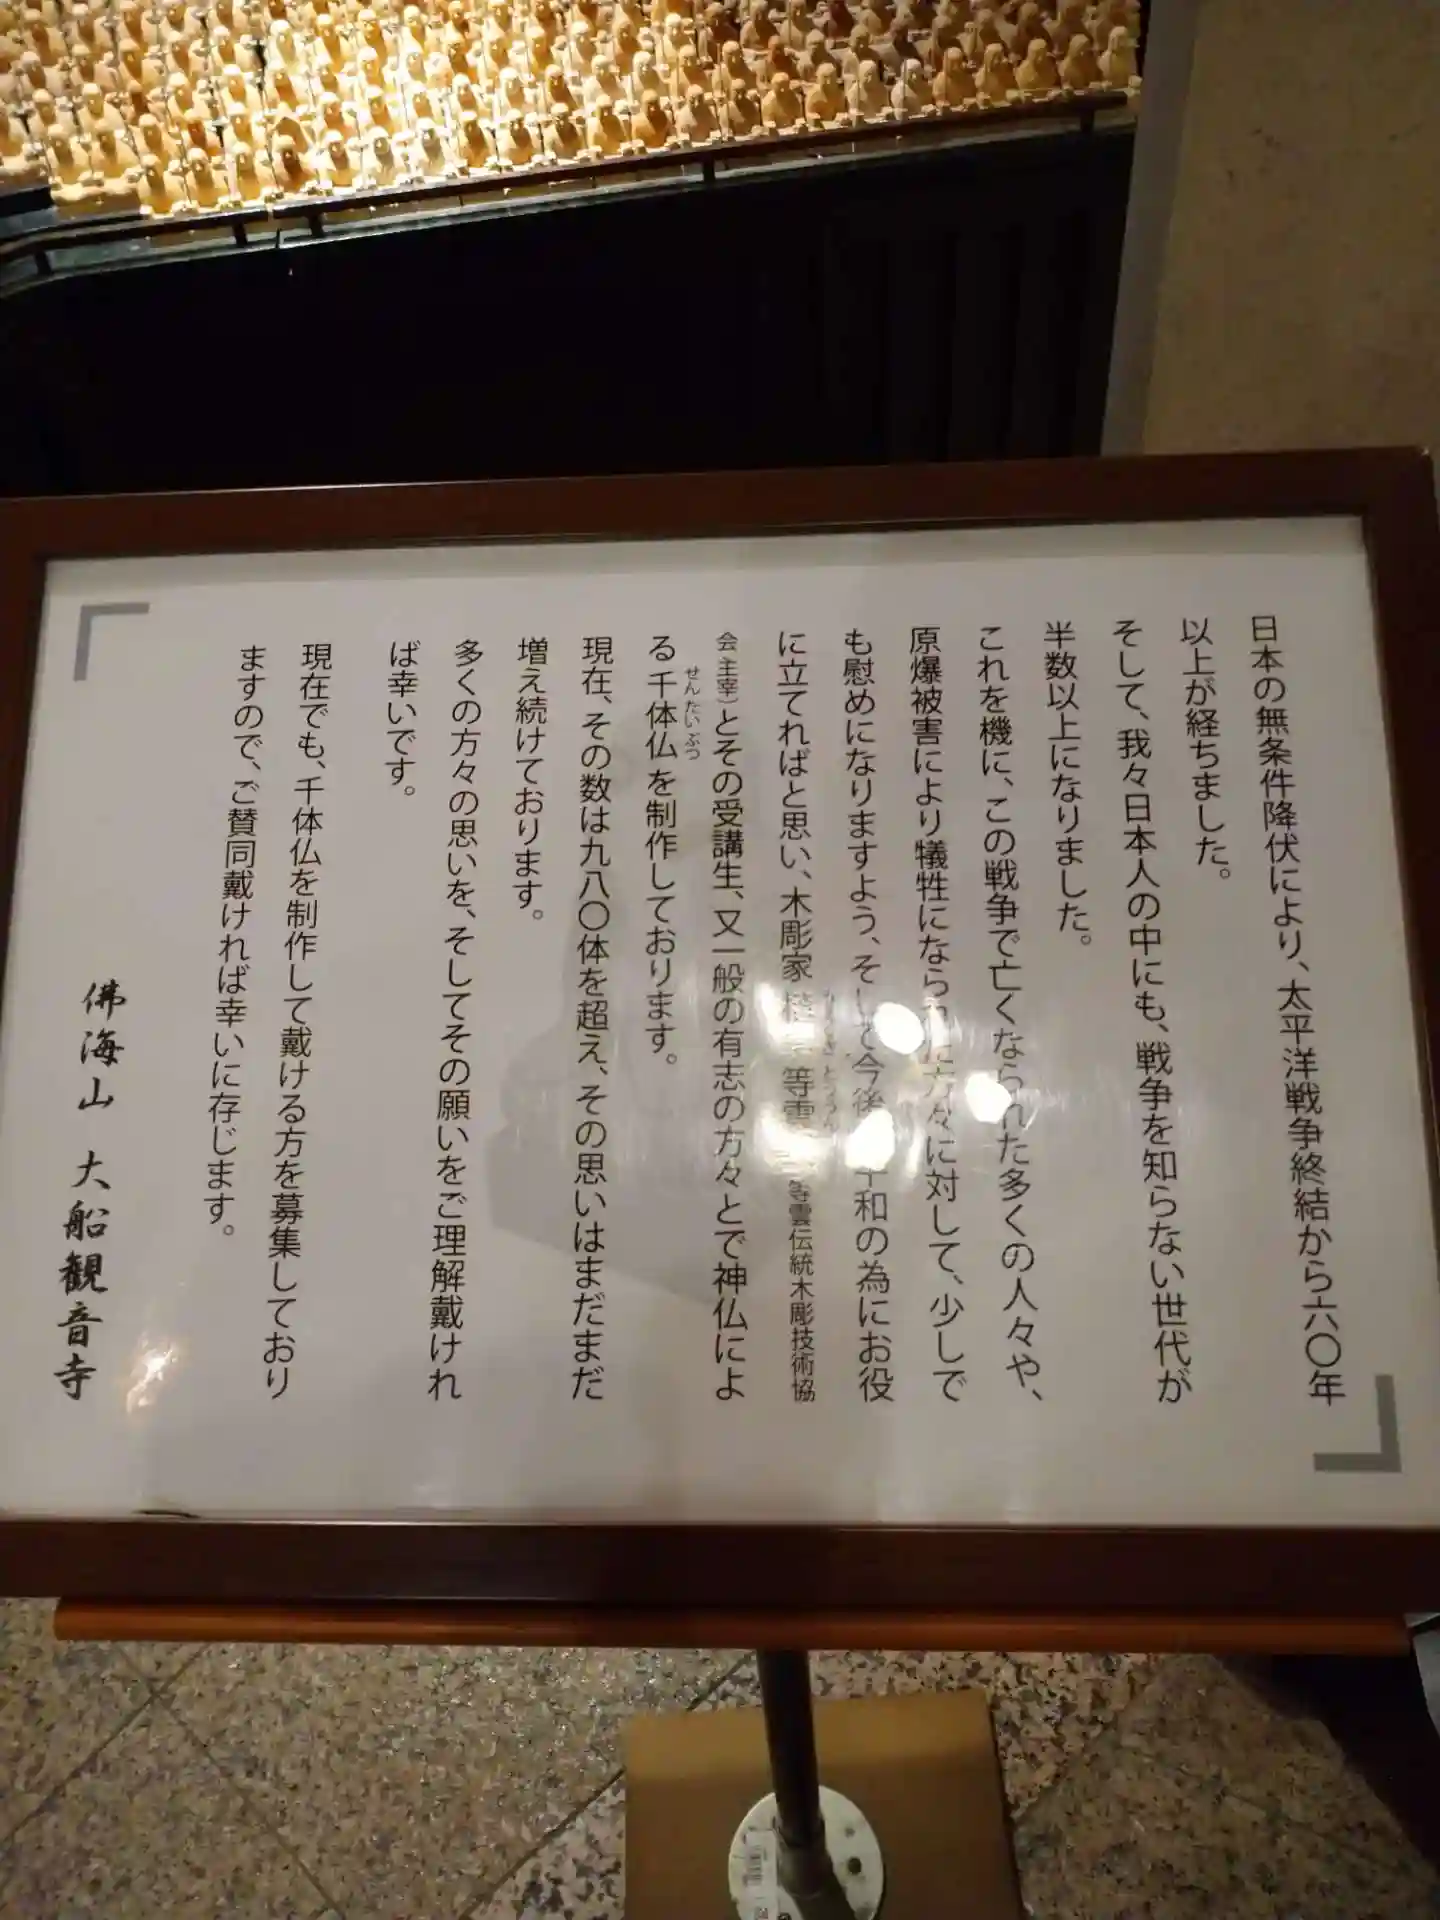 日本の無条件降伏により、太平洋戦争終結から六〇年
以上が経ちました。
そして、我々日本人の中にも、戦争を知らない世代が
半数以上になりました。
これを機に、この戦争で亡くなられた多くの人々や、
原爆被害により犠牲になられた方々に対して、少しで
も慰めになりますよう、そして今後の平和の為にお役
に立てればと思い、木彫家 等雲 等雲伝統木彫技術協
会 主宰）とその受講生、又一般の有志の方々とで神仏によ
る千体仏を制作しております。
せんたいぶつ
現在、その数は九八〇体を超え、その思いはまだまだ
増え続けております。
多くの方々の思いを、そしてその願いをご理解戴けれ
ば幸いです。
現在でも、千体仏を制作して戴ける方を募集しており
ますので、ご賛同戴ければ幸いに存じます。
佛海山 大船観音寺